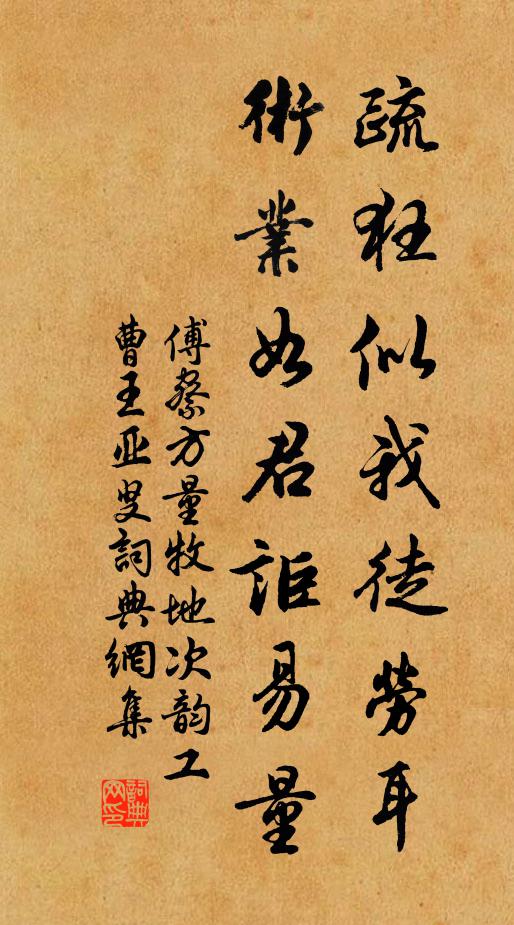 疏狂似我徒勞耳
術業如君詎易量
傅察方量牧地次韵工
曹王亚叟詞典網集
詞典网印